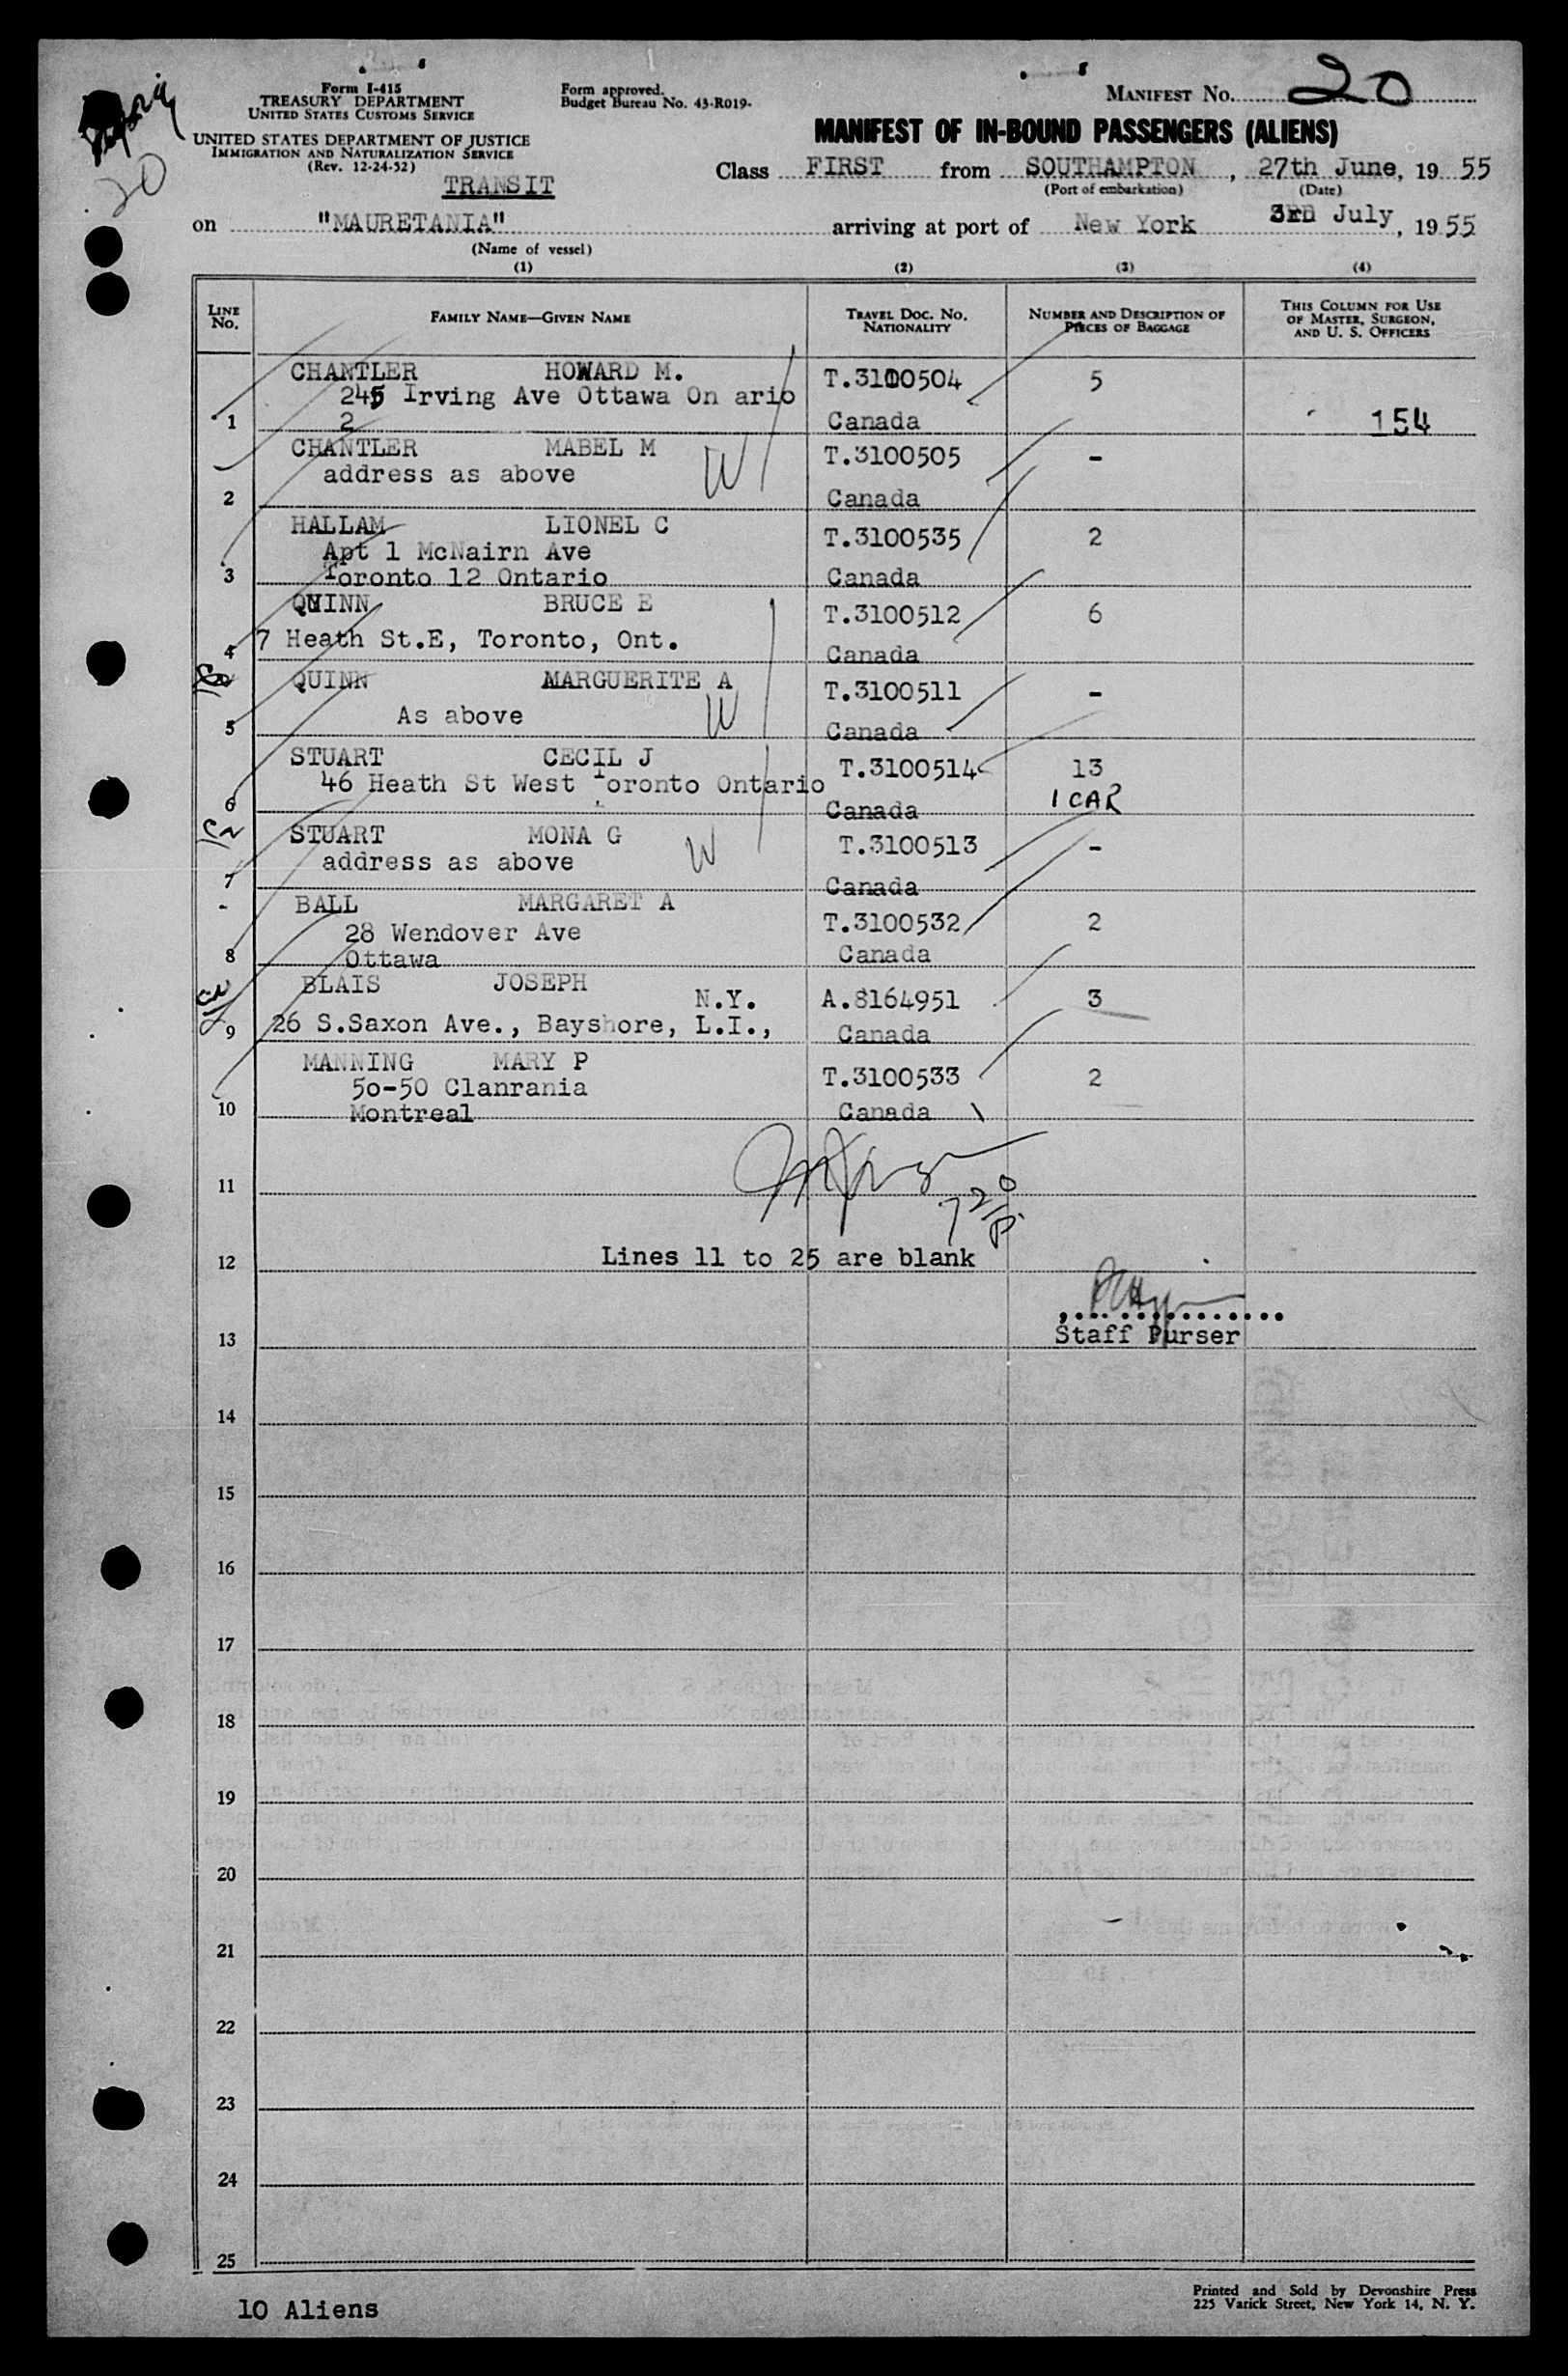 Form I-415
TREASURY DEPARTMENT
UNITED STATES CUSTOMS SERVICE
UNITED STATES DEPARTMENT OF JUSTICE
IMMIGRATION AND NATURALIZATION SERVICE
(Rev. 12-24-52)
TRANSIT
20
Form approved.
Budget Bureau No. 43-R019.
MANIFEST No. 20
MANIFEST OF IN-BOUND PASSENGERS (ALIENS)
Class FIRST from SOUTHAMPTON, 27th June, 19 55
(Port of embarkation) (Date)
on "MAURETANIA" arriving at port of New York 3rd July, 19 55
(Name of vessel)
(1) (2) (3) (4)
LINE No. FAMILY NAME—GIVEN NAME TRAVEL DOC. NO. NATIONALITY NUMBER AND DESCRIPTION OF PIECES OF BAGGAGE THIS COLUMN FOR USE OF MASTER, SURGEON, AND U. S. OFFICERS
CHANTLER HOWARD M. T.3100504 5
245 Irving Ave Ottawa On ario
1 2 Canada 154
CHANTLER MABEL M W T.3100505 -
address as above
2 Canada
HALLAM LIONEL C T.3100535 2
Apt 1 McNairn Ave
3 Toronto 12 Ontario Canada
QUINN BRUCE E T.3100512 6
7 Heath St.E, Toronto, Ont.
4 Canada
QUINN MARGUERITE A T.3100511 -
As above W
5 Canada
STUART CECIL J T.3100514 13
46 Heath St West Toronto Ontario
6 Canada 1 CAR
STUART MONA G W T.3100513 -
address as above
7 Canada
BALL MARGARET A T.3100532 2
28 Wendover Ave
8 Ottawa Canada
BLAIS JOSEPH
N.Y. A.8164951 3
9 26 S.Saxon Ave., Bayshore, L.I., Canada
MANNING MARY P T.3100533 2
50-50 Clanrania
10 Montreal Canada
11
12 Lines 11 to 25 are blank
13 Staff Purser
14
15
16
17
18
19
20
21
22
23
24
25
10 Aliens
Printed and Sold by Devonshire Press
225 Varick Street, New York 14, N. Y.